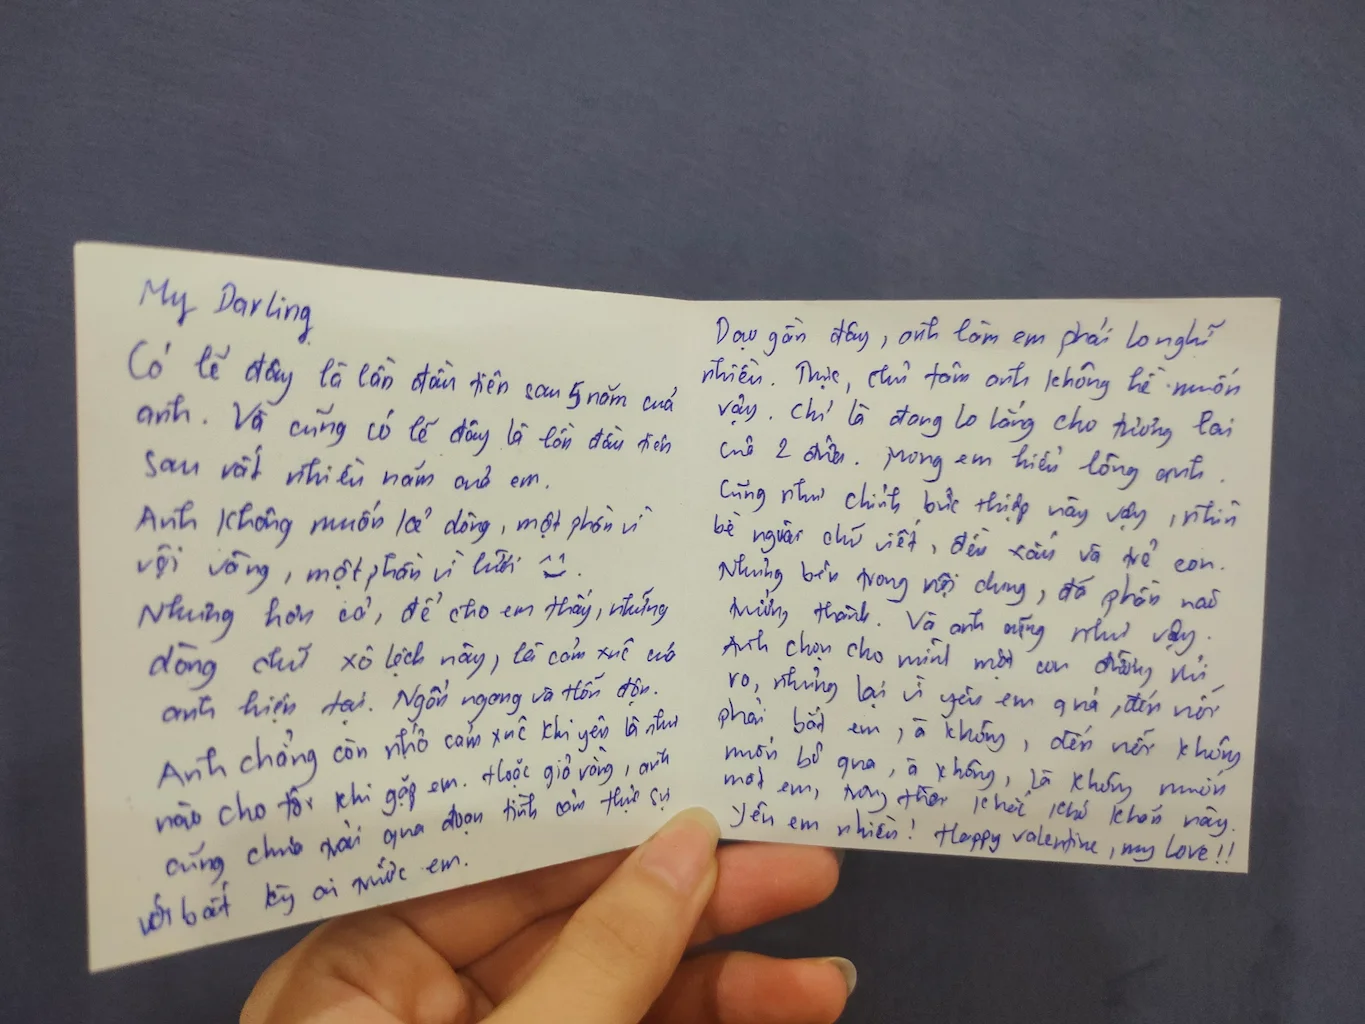 My Darling
Có lẽ đây là lần đầu tiên sau 5 năm của
anh. Và cũng có lẽ đây là lần đầu tiên
sau rất nhiều năm của em.
Anh không muốn kẻ dòng, một phần vì
vội vàng, một phần vì lười
Nhưng hơn cả, để cho em thấy, những
dòng chữ xô lệch này, là cảm xúc của
anh hiện tại. Ngổn ngang và hỗn độn.
Anh chẳng còn nhớ cảm xúc khi yêu là như
nào cho tới khi gặp em. Hoặc giả vàng, anh
cũng chưa trải qua đoạn tình cảm thực sự
với bất kỳ ai trước em.
Dạo gần đây, anh làm em phải lo nghĩ
nhiều. Thực, chủ tâm anh không hề muốn
vậy. Chỉ là đang lo lắng cho tương lai
của 2 đứa. Mong em hiểu lòng anh.
Cũng như chính bức thiệp này vậy, nhìn
bề ngoài chữ viết, đều xấu và trẻ con.
Nhưng bên trong nội dung, đã phần nào
trưởng thành. Và anh cũng như vậy.
Anh chọn cho mình một con đường rủi
ro, nhưng lại vì yêu em quá, đến nỗi
phải bắt em, à không, đến nỗi không
muốn bỏ qua, à không, là không muốn
mất em, trong thời khắc khó khăn này.
Yêu em nhiều! Happy valentine, my love!!